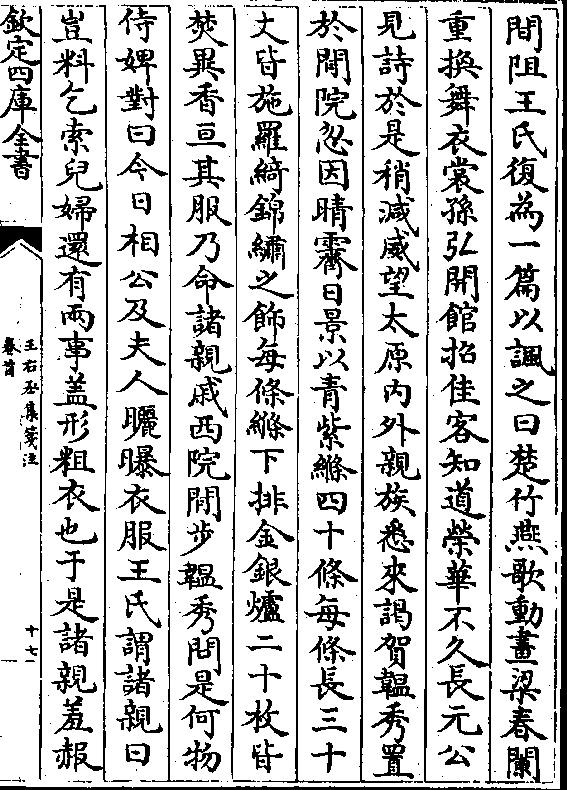 間阻王氏復為一篇以諷之曰楚竹燕歌動畫梁春闌
重換舞衣裳孫弘開館招佳客知道榮華不久長元公
見詩於是稍減威望太原内外親族悉來謁賀韞秀置
於閒院忽因晴霽日景以青紫絛四十條每條長三十
丈皆施羅綺錦繡之飾每條絛下排金銀爐二十枚皆
焚異香亘其服乃命諸親戚西院閒步韞秀問是何物
侍婢對曰今日相公及夫人曬曝衣服王氏謂諸親曰
豈料乞索兒婦還有兩事盖形粗衣也于是諸親羞赧
欽定四庫全書
王右丞集箋注
卷首
十七